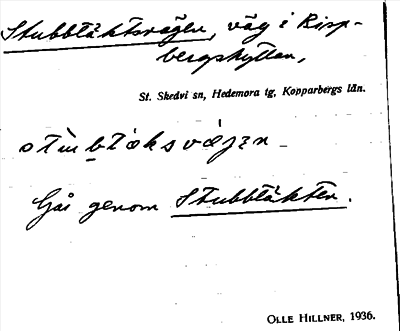 Stubbtäktsvägen, väg i Risp-
bergshyttan,
St. Skedvi sn, Hedemora tg, Kopparbergs län.
Går genom Stubbtäkten.
OLLE HILLNER, 1936.